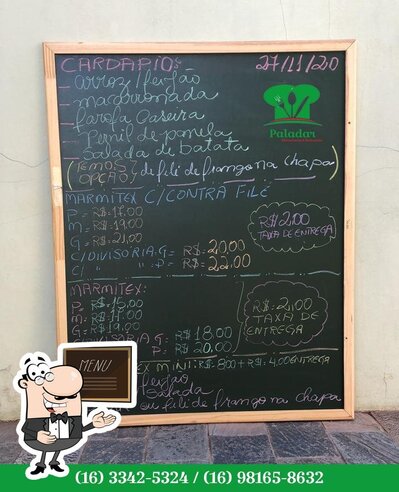 CARDAPIO: 27/11/20
- arroz/feijão
- macarronada
- farofa Caseira
- Pernil de panela
Salada de batata
Paladar
(TEMOS OPÇÃO) de filé de frango na chapa)
MARMITEX C/CONTRA FILÉ
P = R$: 17.00
M = R$: 19.00
G = R$: 21,00
C/DIVISORIA: G = R$: 20.00
C/ " " : P = R$: 22.00
R$ 2,00
TAXA DE ENTREGA
MARMITEX:
P = R$: 15.00
M = R$: 17.00
G = R$: 19.00
G = R$: 18.00
P = R$: 20.00
R$: 2,00
TAXA DE
ENTREGA
MINI: R$: 8,00 + R$: 4.00 ENTREGA
feijão
Salada
ou filé de frango na chapa
MENU
(16) 3342-5324 / (16) 98165-8632